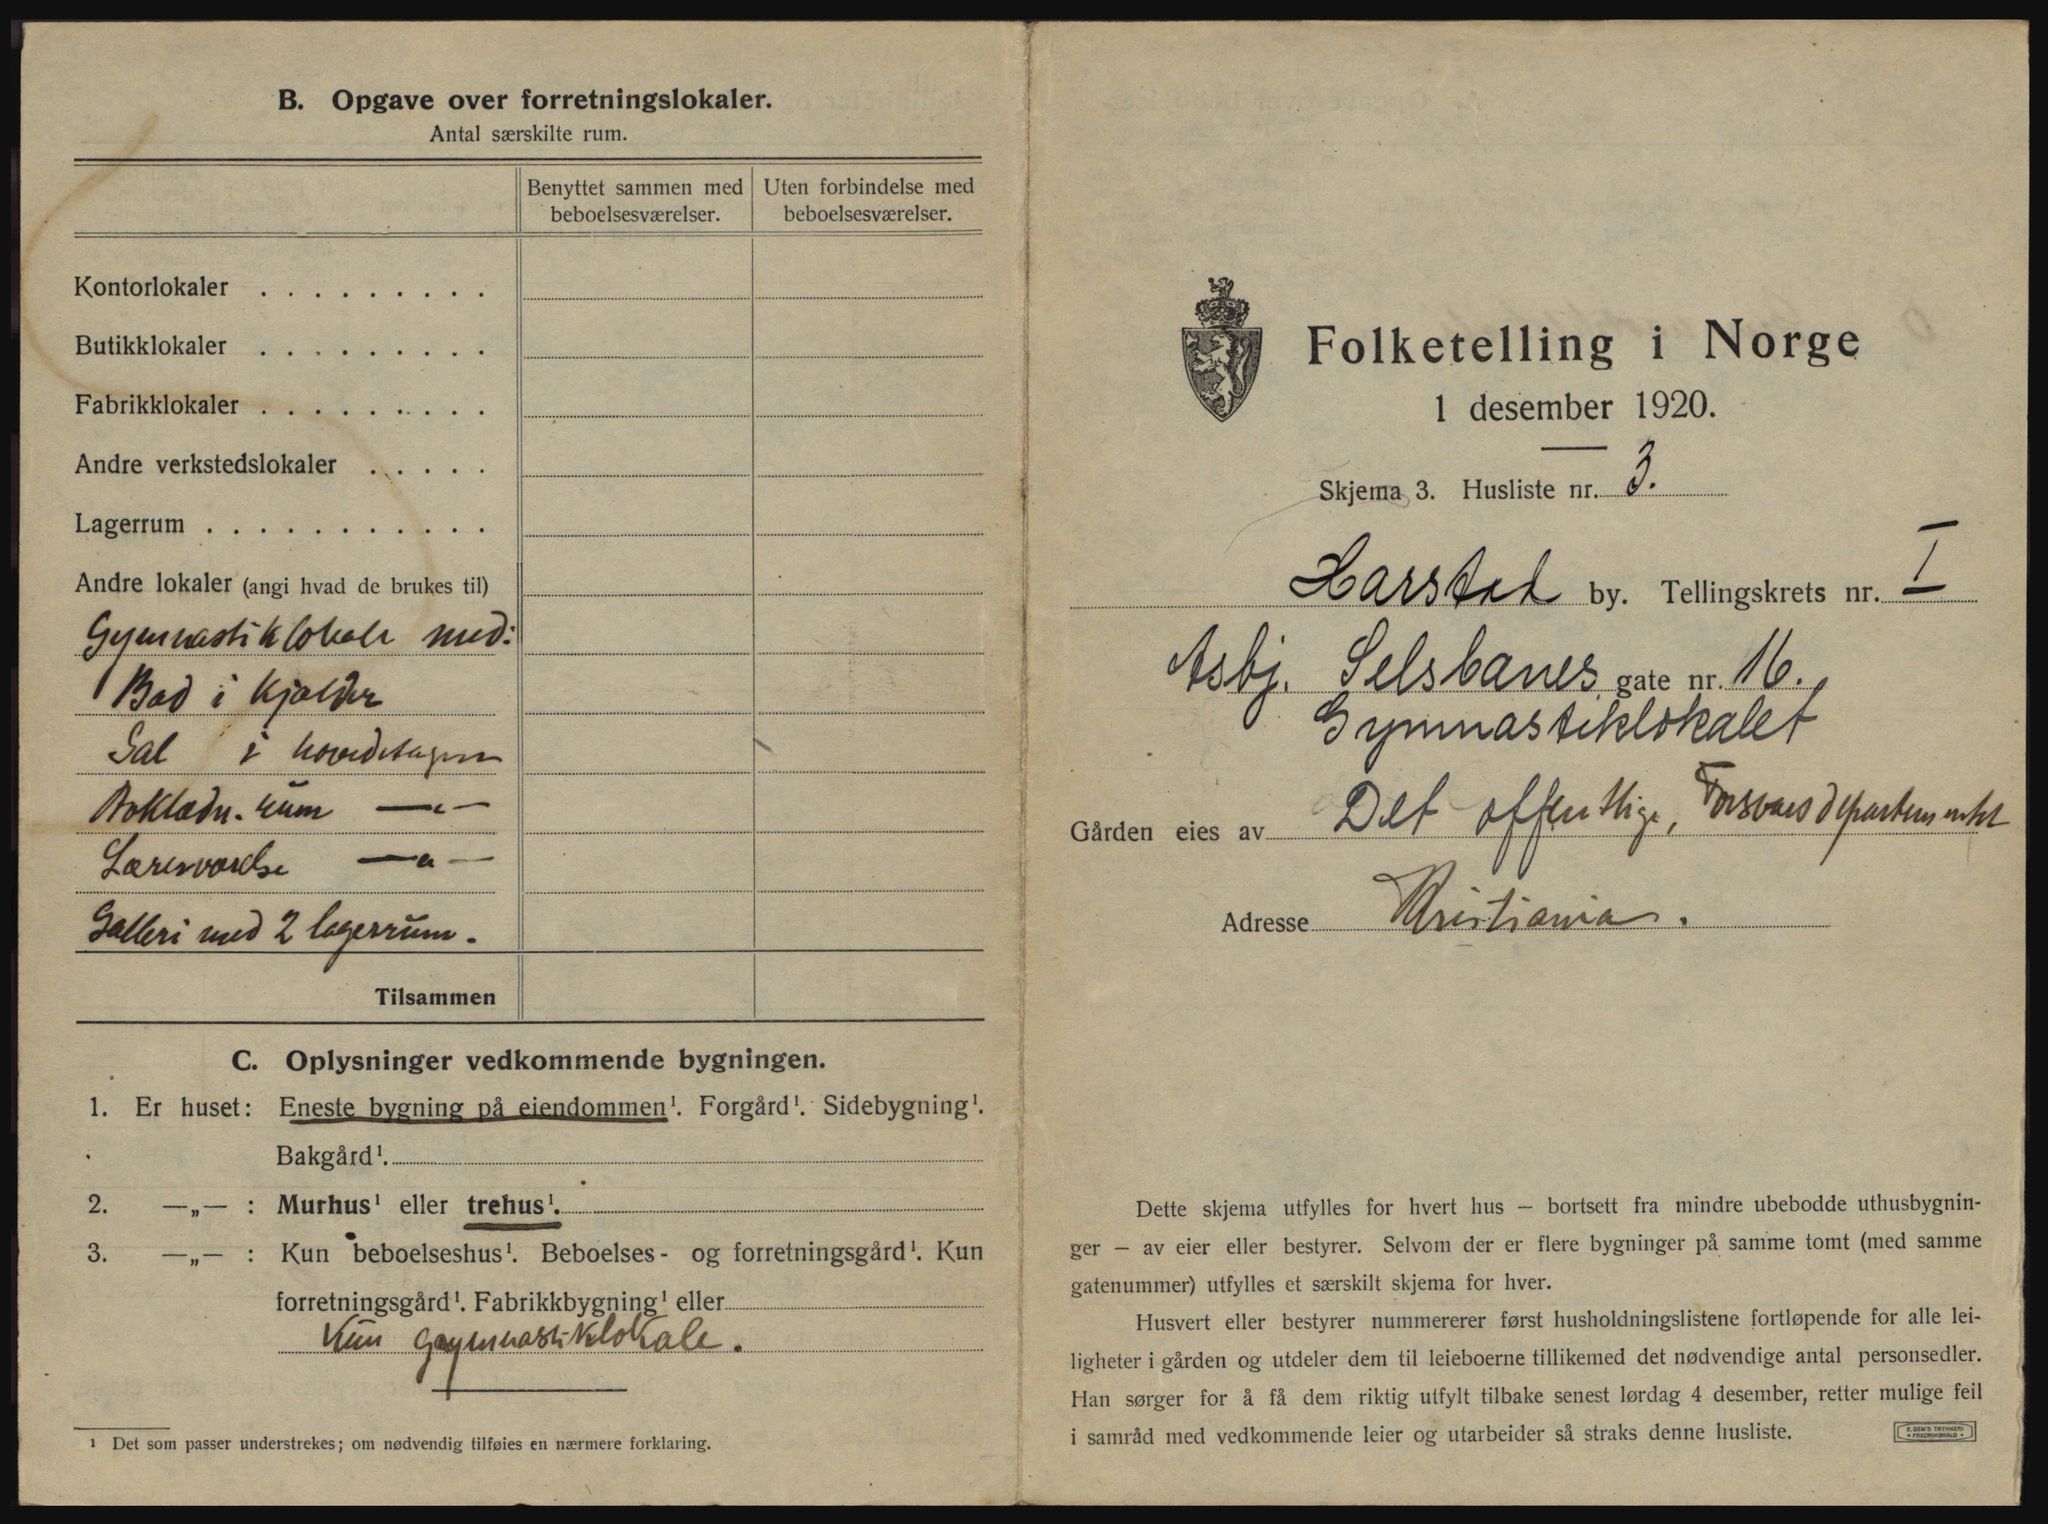 B. Opgave over forretningslokaler.
Antal særskilte rum.
Benyttet sammen med beboelsesværelser.
Uten forbindelse med beboelsesværelser.
Kontorlokaler . . . . . . . . .
Butikklokaler . . . . . . . . .
Fabrikklokaler . . . . . . . . .
Andre verkstedslokaler . . . . .
Lagerrum . . . . . . . . . . .
Andre lokaler (angi hvad de brukes til)
Gymnastiklokale med:
Bad i kjælder
Sal i hovedetagen
Avklædn. rum —„—
Læreværelse —„—
Galleri med 2 lagerrum.
Tilsammen
C. Oplysninger vedkommende bygningen.
1. Er huset: Eneste bygning på eiendommen¹. Forgård¹. Sidebygning¹.
Bakgård¹.
2. —„— : Murhus¹ eller trehus¹.
3. —„— : Kun beboelseshus¹. Beboelses- og forretningsgård¹. Kun
forretningsgård¹. Fabrikkbygning¹ eller
Kun gymnastiklokale.
¹ Det som passer understrekes; om nødvendig tilføies en nærmere forklaring.
Folketelling i Norge
1 desember 1920.
Skjema 3. Husliste nr. 3.
Harstad by. Tellingskrets nr. I
Asbj. Selsbanes gate nr. 16.
Gymnastiklokalet
Gården eies av Det offentlige, Forsvarsdepartementet
Adresse Kristiania.
Dette skjema utfylles for hvert hus – bortsett fra mindre ubebodde uthusbygnin-
ger – av eier eller bestyrer. Selvom der er flere bygninger på samme tomt (med samme
gatenummer) utfylles et særskilt skjema for hver.
Husvert eller bestyrer nummererer først husholdningslistene fortløpende for alle lei-
ligheter i gården og utdeler dem til leieboerne tillikemed det nødvendige antal personsedler.
Han sørger for å få dem riktig utfylt tilbake senest lørdag 4 desember, retter mulige feil
i samråd med vedkommende leier og utarbeider så straks denne husliste.
E. SEM'S TRYKKERI
FREDRIKSHALD